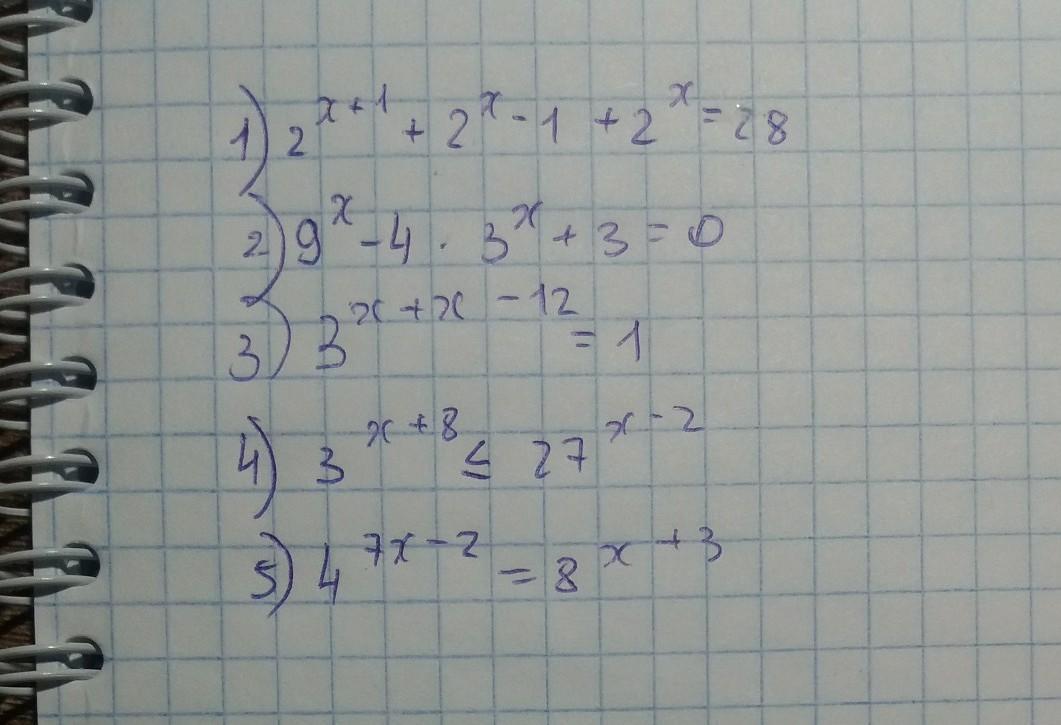 1) 2^{x+1} + 2^x - 1 + 2^x = 28
2) 9^x - 4 · 3^x + 3 = 0
3) 3^{x+x-12} = 1
4) 3^{x+8} ≤ 27^{x-2}
5) 4^{7x-2} = 8^{x+3}